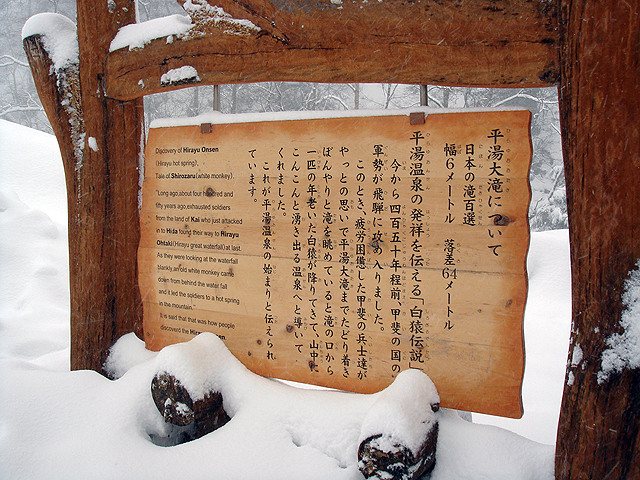 平湯大滝について
日本の滝百選
幅6メートル 落差64メートル
平湯温泉の発祥を伝える「白猿伝説」
今から四百五十年程前、甲斐の国の
軍勢が飛騨に攻め入りました。
このとき、疲労困憊した甲斐の兵士達が
やっとの思いで平湯大滝までたどり着き
ぼんやりと滝を眺めていると滝の口から
一匹の年老いた白猿が降りてきて、山中に
こんこんと湧き出る温泉へと導いて
くれました。
これが平湯温泉の始まりと伝えられ
ています。
Discovery of Hirayu Onsen
(Hirayu hot spring),
Tale of Shirozaru(white monkey).
"Long ago,about four hundred and
fifty years ago,exhausted soldiers
from the land of Kai who just attacked
in to Hida foung their way to Hirayu
Ohtaki(Hirayu great waterfall)at last.
As they were looking at the waterfall
blankly,an old white monkey came
down from behind the water fall
and it led the spiders to a hot spring
in the mountain."
It is said that that was how people
discoverd the Hirayu